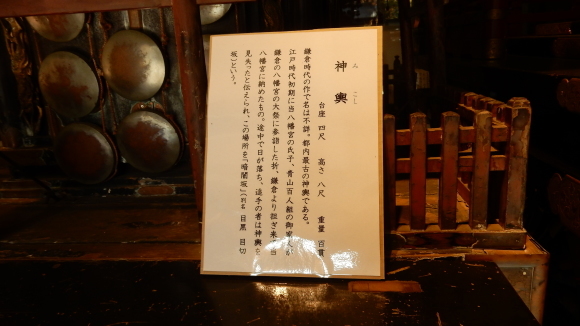 神輿
みこし
台座 四尺 高さ 八尺 重量 百貫
鎌倉時代の作で名は不詳。都内最古の神輿である。
江戸時代初期に当八幡宮の氏子、青山百人組の御家人が
鎌倉の八幡宮の大祭に参詣した折、鎌倉より担ぎ来
八幡宮に納めたもの。途中で日が落ち、追手の者は神輿を
見失ったと伝えられ、この場所を「暗闇坂(別名 目黒 目切
坂)という。